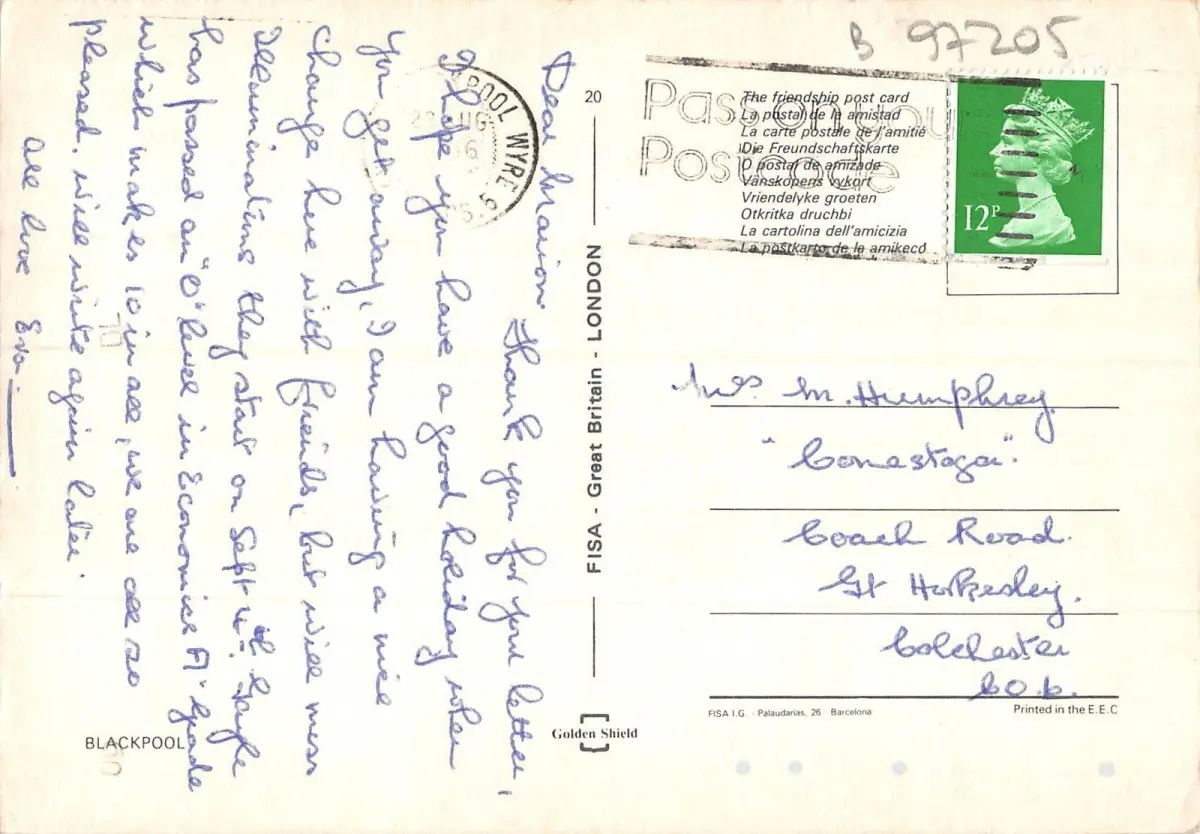 Dear Marion
Thank you for your letter,
I hope you have a good holiday when
you get away, I am having a nice
change here with friends, but will miss
Illuminations they start on Sept 4th. Gayle
has passed an "O" level in Economics "A" grade
which makes 10 in all, we are all so
pleased. will write again later.
all love Eva.
BLACKPOOL
20
FISA - Great Britain - LONDON
Golden Shield
POOL WYRE
UG
B 97205
Pass on you
Postcode
The friendship post card
La postal de la amistad
La carte postale de l'amitié
Die Freundschaftskarte
O postal de amizade
Vänskapens vykort
Vriendelyke groeten
Otkritka druchbi
La cartolina dell'amicizia
La postkarto de la amikeco
12P
Mrs M. Humphrey.
"Conestoga".
Coach Road.
Gt Horkesley.
Colchester
CO.6.
FISA I.G. - Palaudarias, 26 Barcelona
Printed in the E.E.C